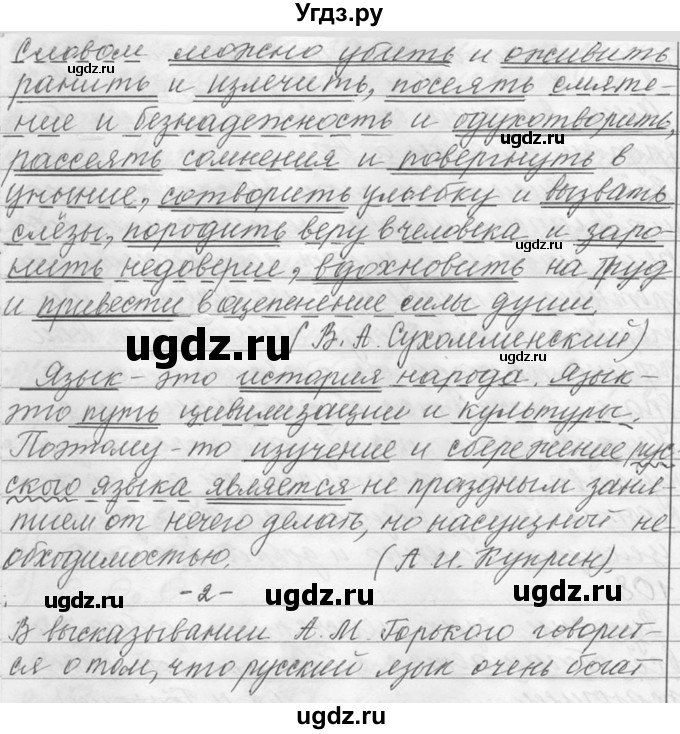 Угдз.ру
Словом можно убить и оживить
ранить и излечить, посеять смяте-
ние и безнадежность и одухотворить,
рассеять сомнения и повергнуть в
уныние, сотворить улыбку и вызвать
слёзы, породить веру в человека и заро-
нить недоверие, вдохновить на труд
и привести в оцепенение силы души.
(В. А. Сухомлинский)
Язык - это история народа. Язык -
это путь цивилизации и культуры.
Поэтому-то изучение и сбережение рус-
ского языка является не праздным заня-
тием от нечего делать, но насущной не
обходимостью. (А. И. Куприн).
-2-
В высказывании А. М. Горького говорит-
ся о том, что русский язык очень богат
ugdz.ru
ugdz.ru
ugdz.ru
ugdz.ru
ugdz.ru
ugdz.ru
ugdz.ru
ugdz.ru
ugdz.ru
ugdz.ru
ugdz.ru
ugdz.ru
ugdz.ru